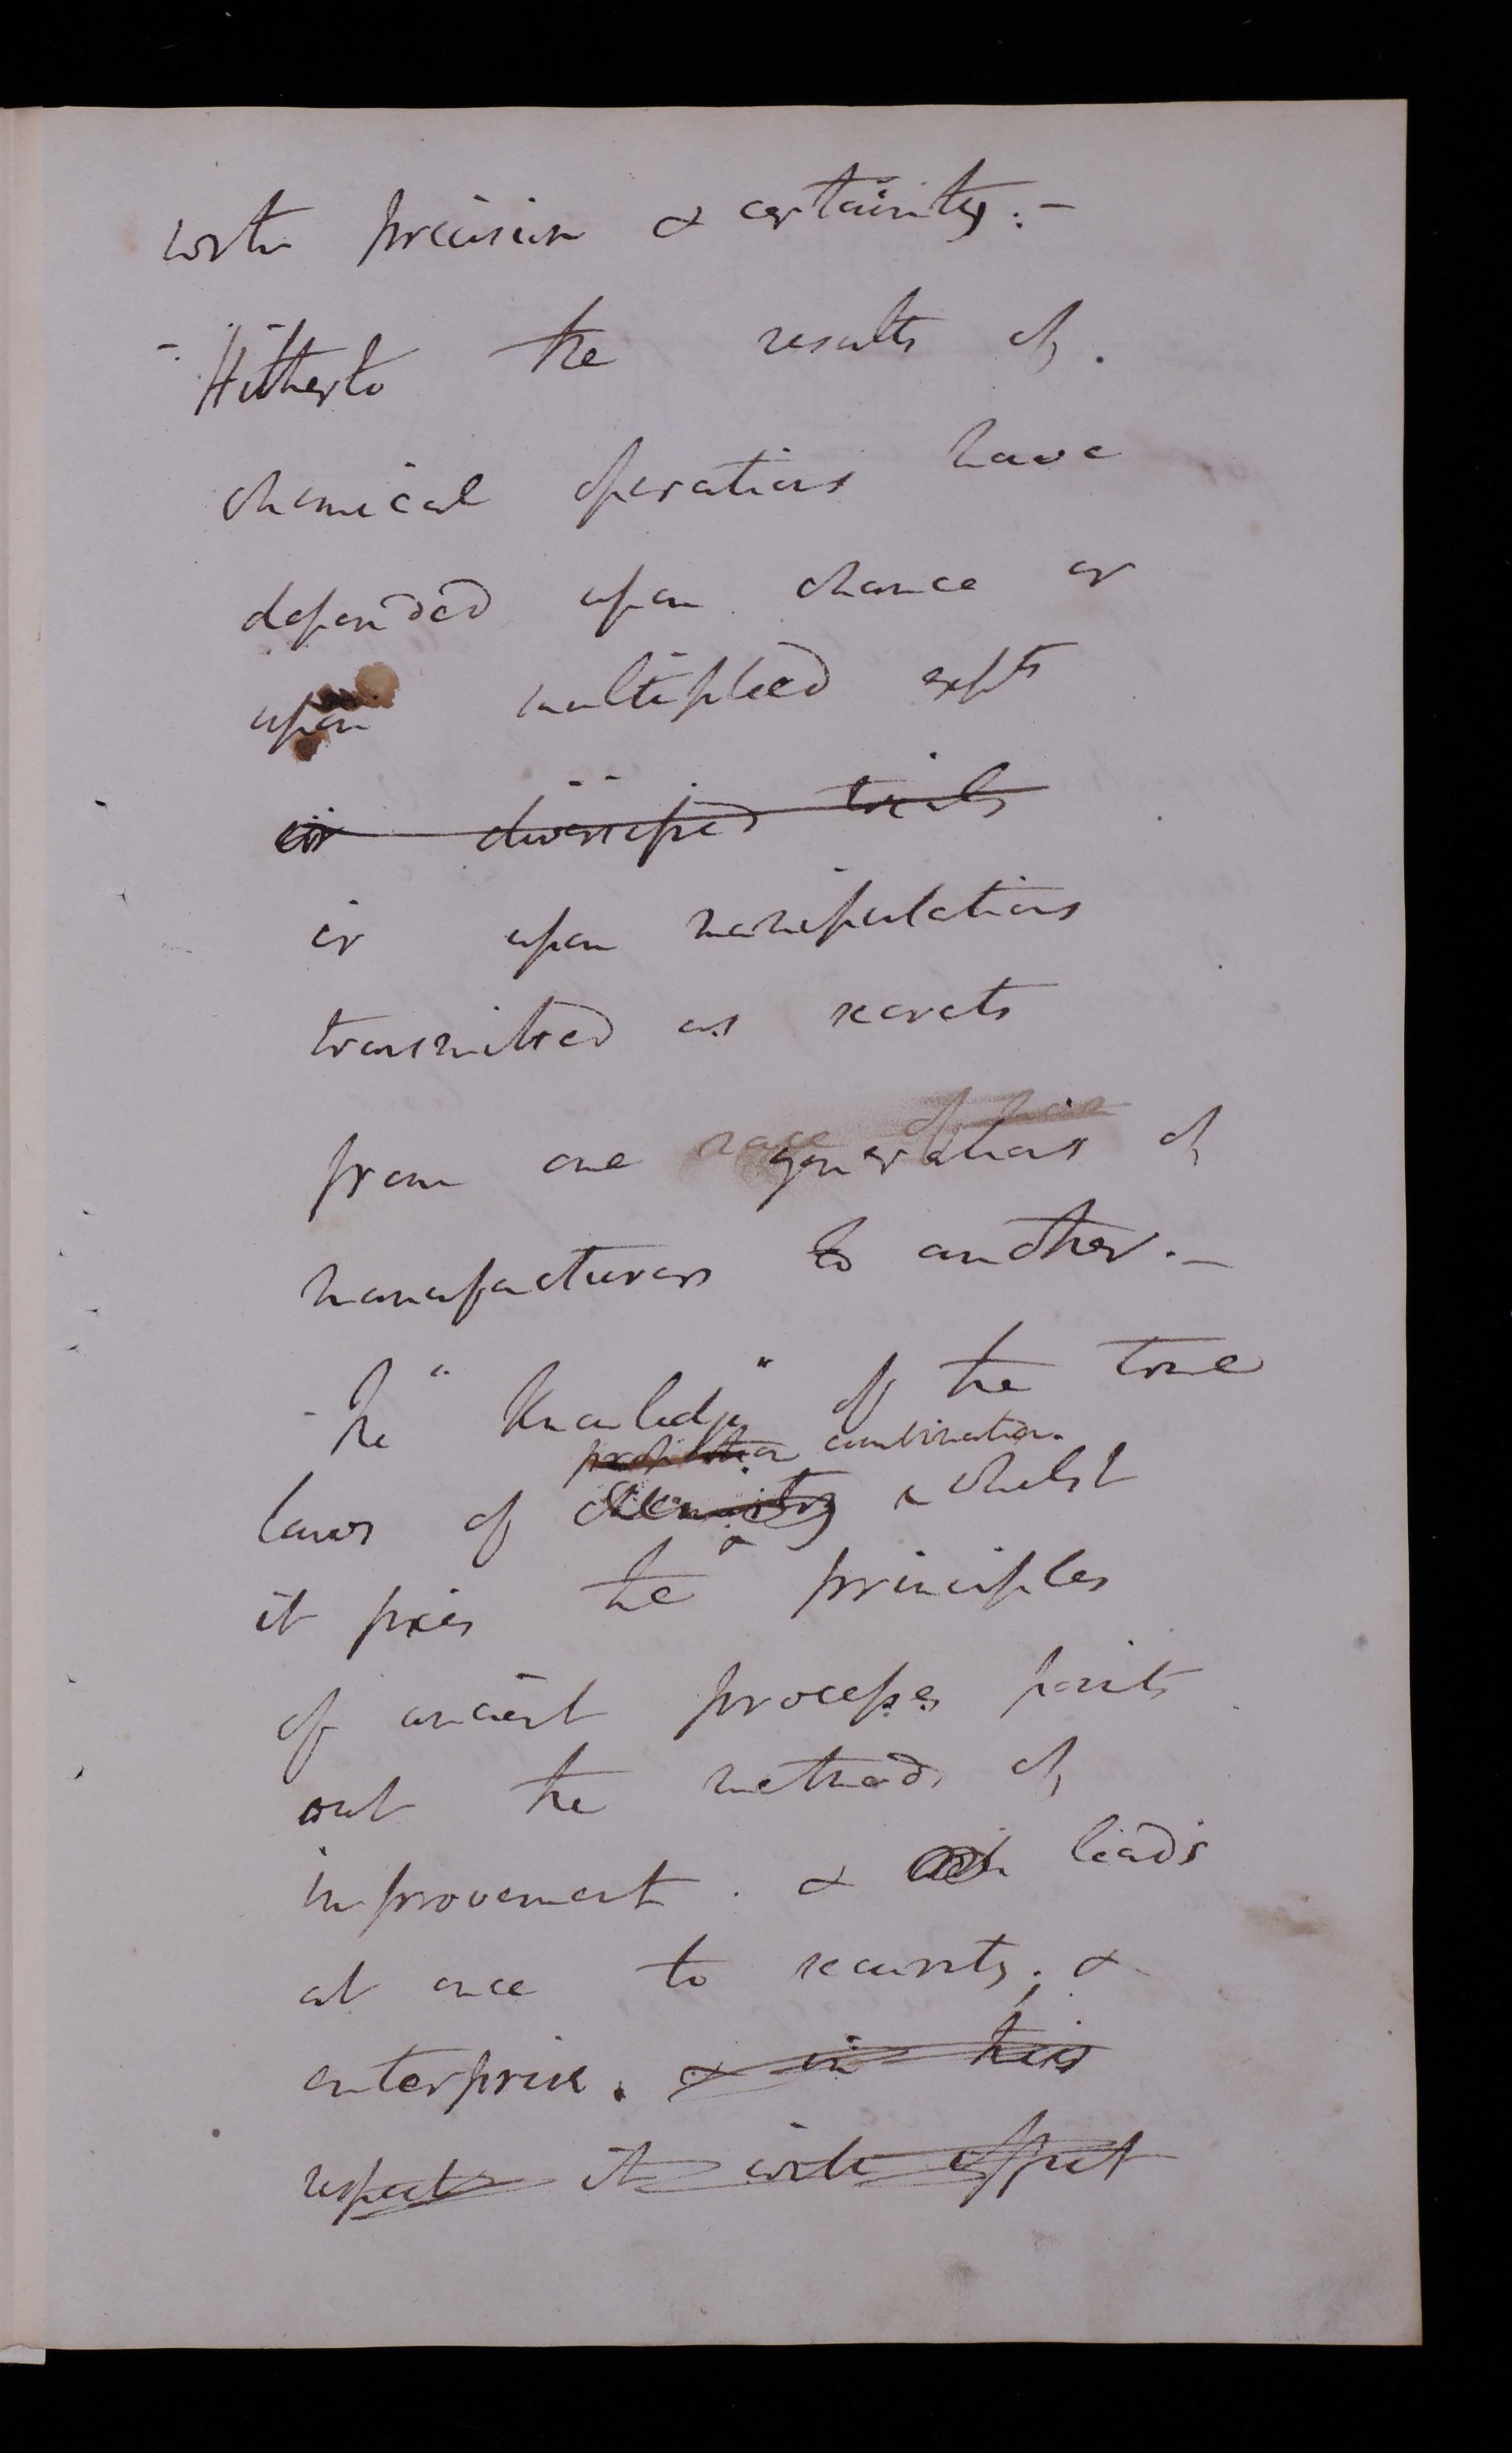 with precision & certainity. -
- Hitherto the results of
chemical operations have
depended upon chance or
upon multiplied expts
or diversified trials
or upon manipulations
transmitted as secrets
race of men
from one generations of
manufacturers to another. -
- The "Knowledge" of the true
combination.
laws of chemistry whilst
it fixes the & principles
of ancient processes points
out the methods of
improvement. & leads
at once to security; &
enterprise. & in this
respect it with effect